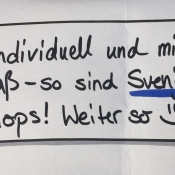 individuell und mi
aß – so sind Sven
hops! Weiter so :)